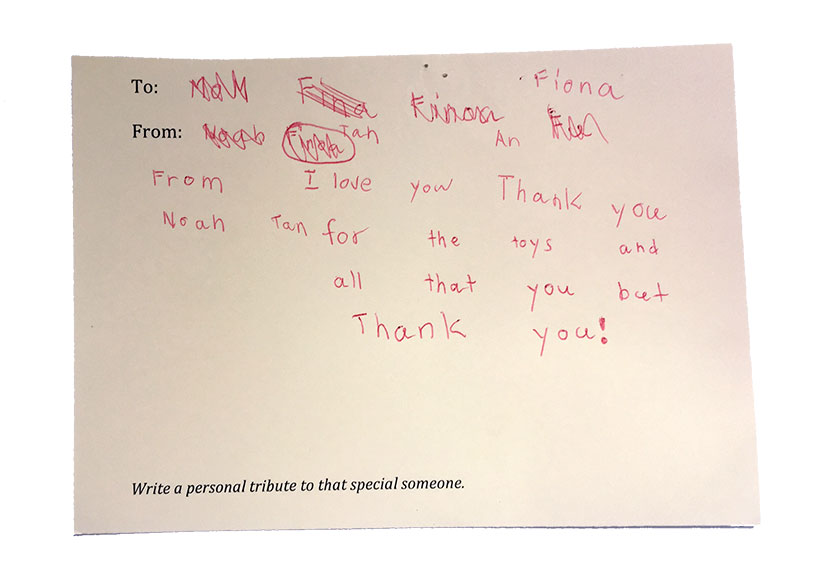 To: Fiona
From: Tan An
From I love you Thank you
Noah Tan for the toys and
all that you but
Thank you!
Write a personal tribute to that special someone.